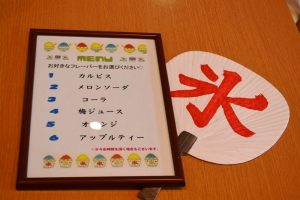 MENU
お好きなフレーバーをお選びください♪
1 カルピス
2 メロンソーダ
3 コーラ
4 梅ジュース
5 オレンジ
6 アップルティー
氷